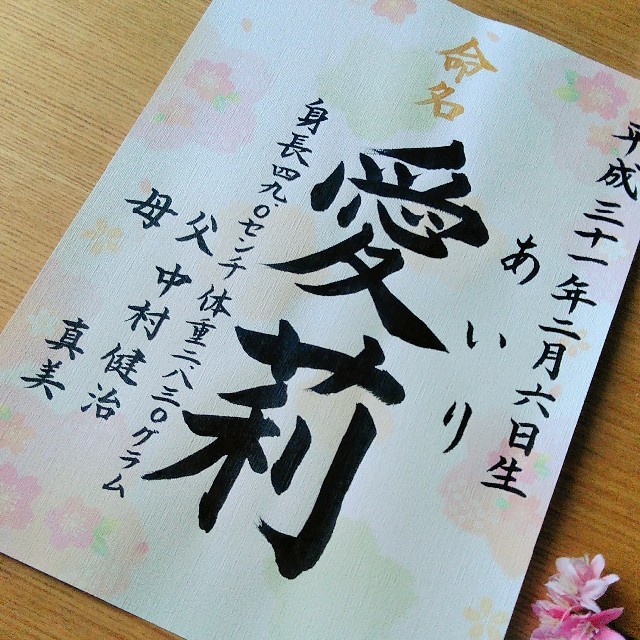 平成三十一年二月六日生
あいり
命名
愛莉
身長四九.〇センチ 体重二八三〇グラム
父 中村健治
母 真美